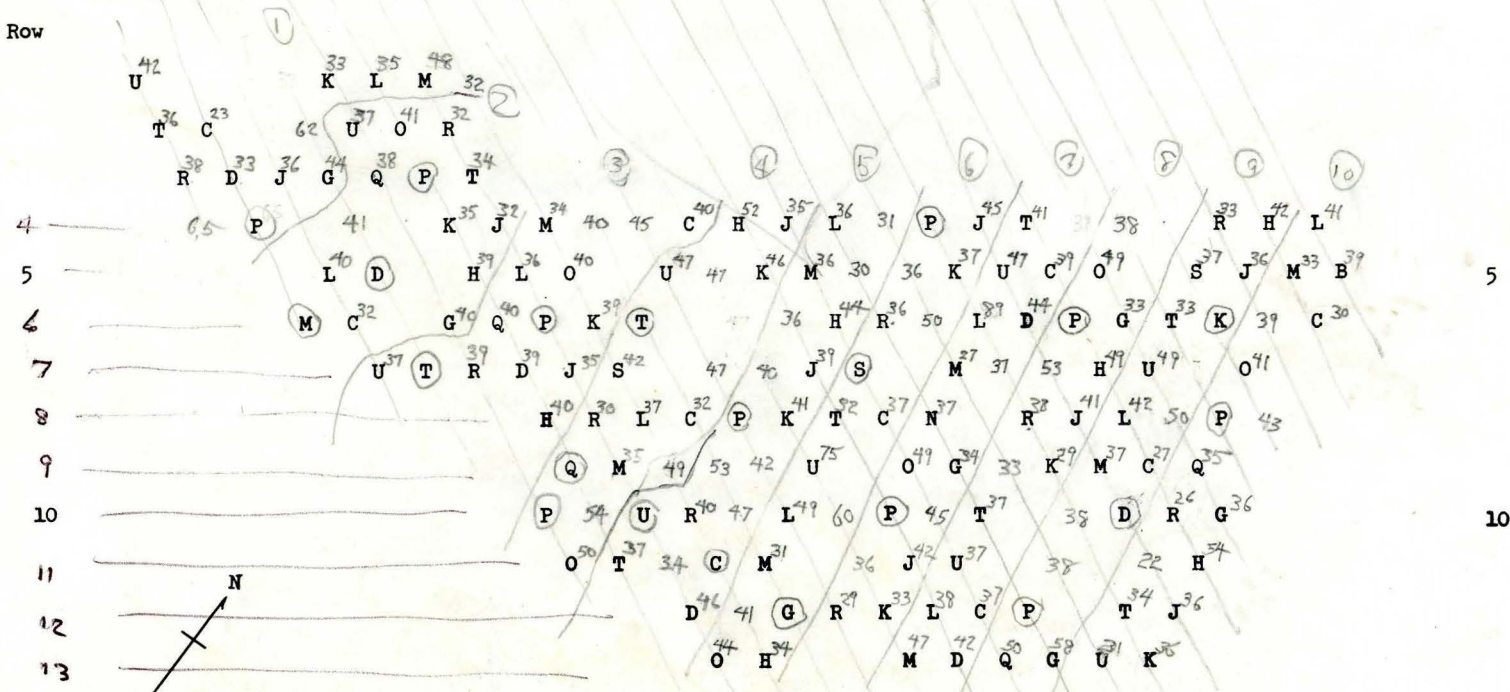 Row
1
U 42 K 33 L 35 M 48 32 2
T 36 C 23 62 U 37 O 41 R 32
R 38 D 33 J 36 G 44 Q 38 P T 34 3 4 5 6 7 8 9 10
4 P 41 K 35 J 32 M 34 40 45 C 40 H 52 J 35 L 36 31 P J 45 T 41 38 R 33 H 42 L 41
5 L 40 D H 39 L 36 O 40 U 47 47 K 46 M 36 30 36 K 37 U 47 C 39 O 49 S 37 J 36 M 33 B 39 5
6 M C 32 G 40 Q 40 P K 39 T 36 H 44 R 36 50 L 89 D 44 P G 33 T 33 K 39 C 30
7 U 37 T R 39 D 39 J 35 S 42 47 40 J 39 S M 27 37 53 H 49 U 49 O 41
8 H 40 R 30 L 37 C 32 P K 41 T 32 C 37 N 37 R 38 J 41 L 42 50 P 43
9 Q M 35 49 53 42 U 75 O 49 G 34 33 K 29 M 37 C 27 Q 35
10 P 54 U R 40 47 L 49 60 P 45 T 37 38 D R 26 G 36 10
11 O 50 T 37 34 C M 31 36 J 42 U 37 38 22 H 54
N
12 D 46 41 G R 29 K 33 L 38 C 37 P T 34 J 36
13 O 44 H 34 M 47 D 42 Q 50 G 58 U 31 K